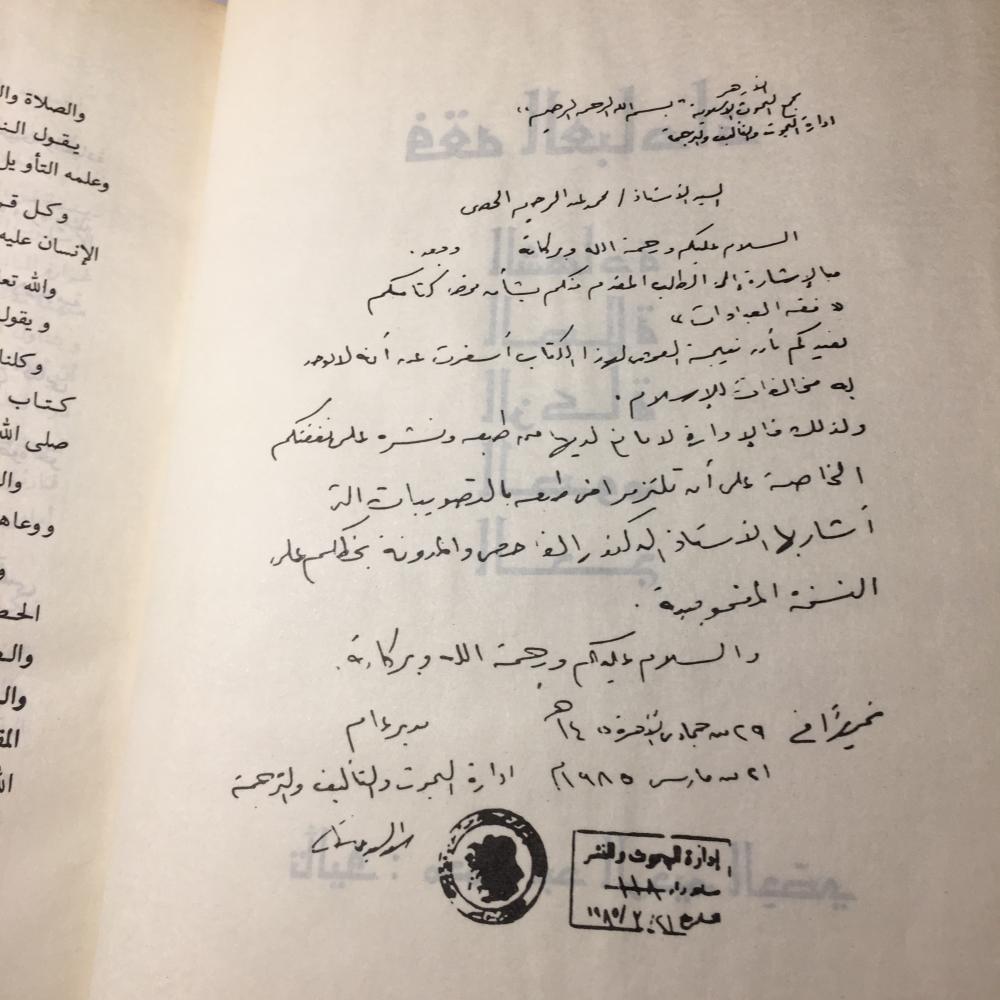 الأزهر
مجمع البحوث الإسلامية "بسم الله الرحمن الرحيم"
ادارة البحوث والتأليف والترجمة
السيد الأستاذ / محمد عبد الرحيم الحصى
السلام عليكم ورحمة الله وبركاته وبعد .
فبالإشارة إلى الطلب المقدم منكم بشأن فحص كتابكم
« فقه العبادات »
نفيدكم بأن نتيجة الفحص لهذا الكتاب أسفرت عن أنه لا توجد
به مخالفات للإسلام .
ولذلك فالإدارة لا مانع لديها من طبعه ونشره على نفقتكم
الخاصة على أن تلتزموا في طبعه بالتصويبات التى
أشار بها الأستاذ الدكتور الفاحص والمدونة بخطكم على
النسخة المفحوصة .
والسلام عليكم ورحمة الله وبركاته .
تحريرًا في ٢٩ من جمادى الآخرة ١٤٠٥ هـ مدير عام
٢١ من مارس ١٩٨٥ م ادارة البحوث والتأليف والترجمة
إدارة البحوث والنشر
١٩٨٥/٣/٢١
والصلاة وال
يقول الن
وعلمه التأويل
وكل قو
الإنسان عليه
والله تعا
ويقول
وكلنا
كتاب
صلى الله
وال
ووعاه
و
الحص
والع
وال
المق
الل
فقه العبادات
الطهارة
الصلاة
الزكاة
الصوم
الحج